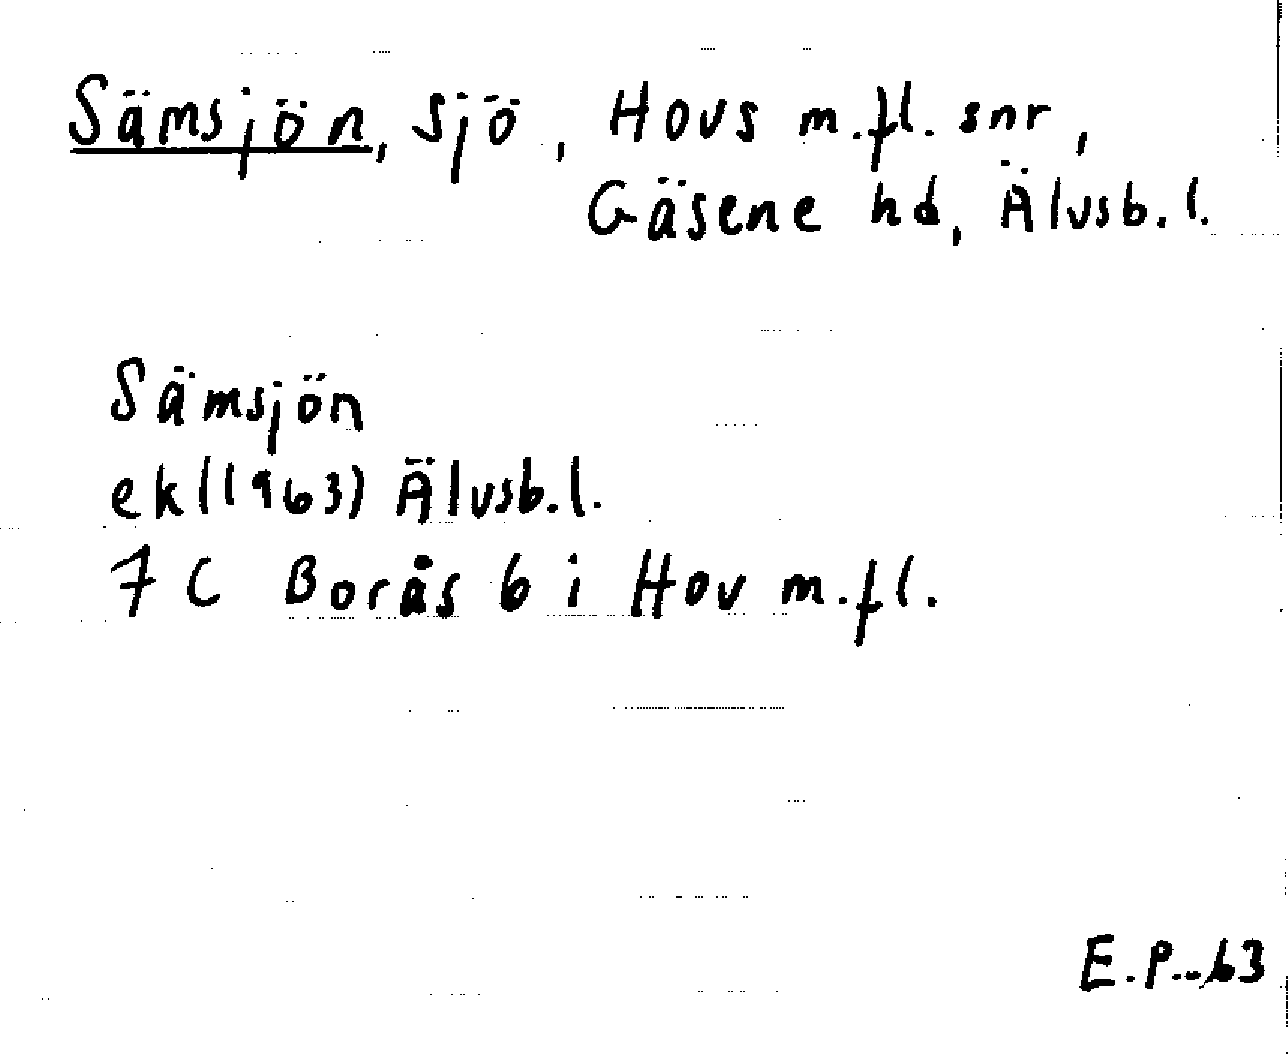 Sämsjön, sjö, Hovs m.fl. snr,
Gäsene hd, Älvsb.l.
Sämsjön
ek(1963) Älvsb.l.
7 C Borås 6 i Hov m.fl.
E.P.-63